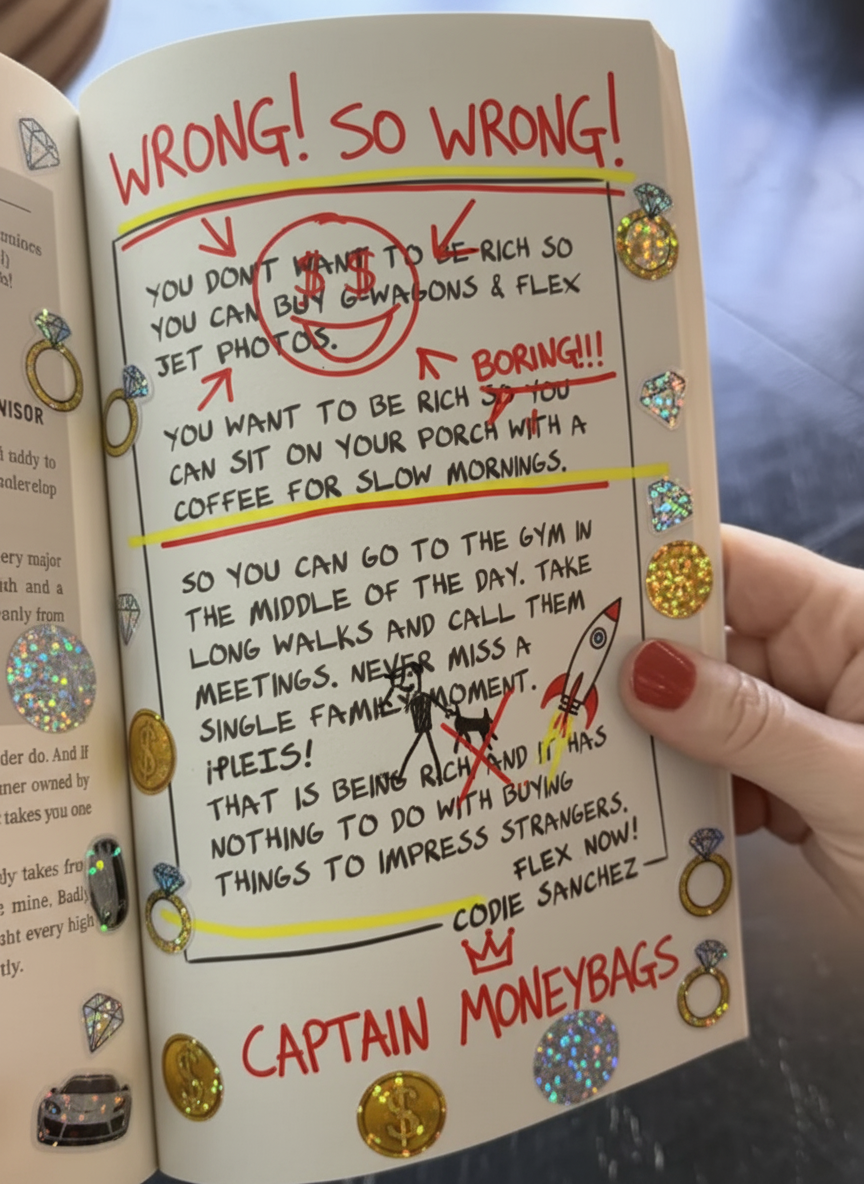 WRONG! SO WRONG!
YOU DON'T WANT TO BE RICH SO
YOU CAN BUY G-WAGONS & FLEX
JET PHOTOS.
$ $
BORING!!!
YOU WANT TO BE RICH SO YOU
CAN SIT ON YOUR PORCH WITH A
COFFEE FOR SLOW MORNINGS.
SO YOU CAN GO TO THE GYM IN
THE MIDDLE OF THE DAY. TAKE
LONG WALKS AND CALL THEM
MEETINGS. NEVER MISS A
SINGLE FAMILY MOMENT.
¡PLEIS!
THAT IS BEING RICH AND IT HAS
NOTHING TO DO WITH BUYING
THINGS TO IMPRESS STRANGERS.
FLEX NOW!
CODIE SANCHEZ
CAPTAIN MONEYBAGS
VISOR
ery major
ith and a
anly from
der do. And If
ner owned by
takes you one
ly takes fro
e mine. Badly
ght every high
tly.
$
$
$